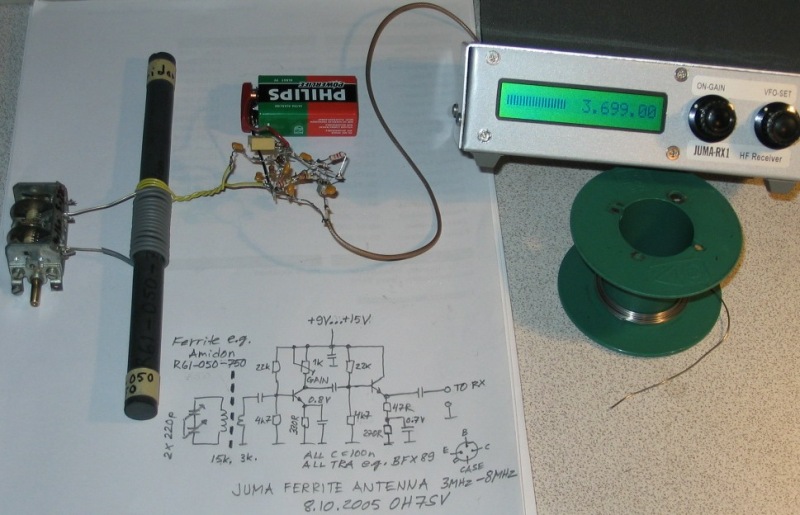 PHILIPS
POWERLIFE
3.699.00
ON-GAIN
VFO-SET
JUMA-RX1
HF Receiver
R61-050-
050
Ferrite e.g.
Amidon
R61-050-750
+9V...+15V
22k
1k
22k
GAIN
0.8V
TO RX
2 X 220p
4k7
330R
4k7
47R
270R
0.7V
15k. 3k.
ALL C = 100n
ALL TRA e.g. BFX89
B
E
C
CASE
JUMA FERRITE ANTENNA 3MHz-8MHz
8.10.2005 OH7SV